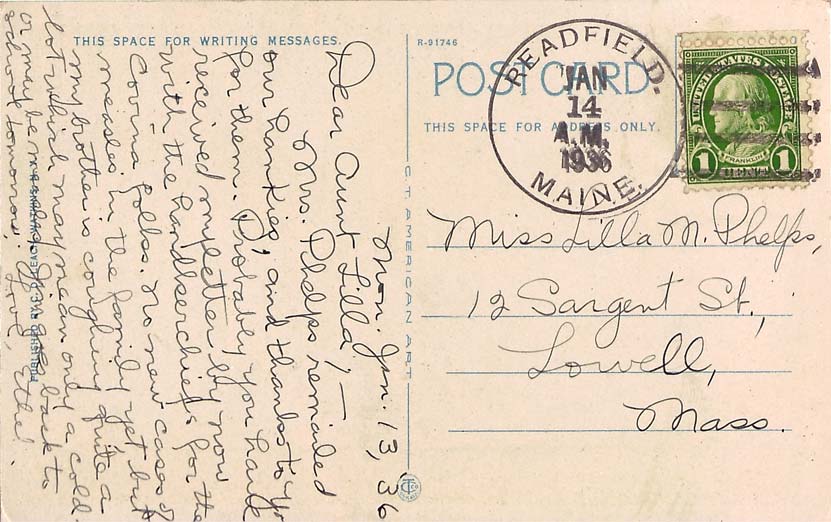 THIS SPACE FOR WRITING MESSAGES.
Mon. Jan. 13, '36
Dear Aunt Lilla,—
Mrs. Phelps remailed
our hankies, and thanks to you
for them. Probably you have
received my letter by now
with the handkerchiefs for the
Corina folks. No new cases of
measles in the family yet but
my brother is coughing quite a
lot which may mean only a cold
or maybe measles. goes back to
school tomorrow. Love, Ethel.
PUBLISHED BY
C.T. AMERICAN ART
R-91746
POST CARD
THIS SPACE FOR ADDRESS ONLY.
READFIELD.
JAN
14
A.M.
1936
MAINE.
UNITED STATES POSTAGE
FRANKLIN
1 CENT 1
Miss Lilla M. Phelps,
12 Sargent St.,
Lowell,
Mass.